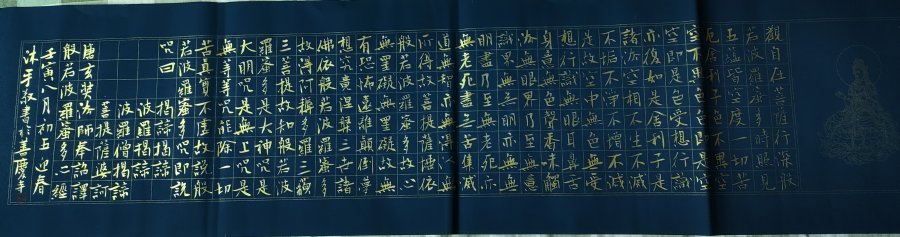 觀自在菩薩行深般
若波羅蜜多時照見
五蘊皆空度一切苦
厄舍利子色不異空
空不異色色即是空
空即是色受想行識
亦復如是舍利子是
諸法空相不生不滅
不垢不淨不增不減
是故空中無色無受
想行識無眼耳鼻舌
身意無色聲香味觸
法無眼界乃至無意
識界無無明亦無無
明盡乃至無老死亦
無老死盡無苦集滅
道無智亦無得以無
所得故菩提薩埵依
般若波羅蜜多故心
無罣礙無罣礙故無
有恐怖遠離顛倒夢
想究竟涅槃三世諸
佛依般若波羅蜜多
故得阿耨多羅三藐
三菩提故知般若波
羅蜜多是大神咒是
大明咒是無上咒是
無等等咒能除一切
苦真實不虛故說般
若波羅蜜多咒即說
咒曰
揭諦揭諦
波羅揭諦
波羅僧揭諦
菩提薩婆訶
唐玄奘法師奉詔譯
般若波羅蜜多心經
壬寅八月初 迎春
沐手敬書